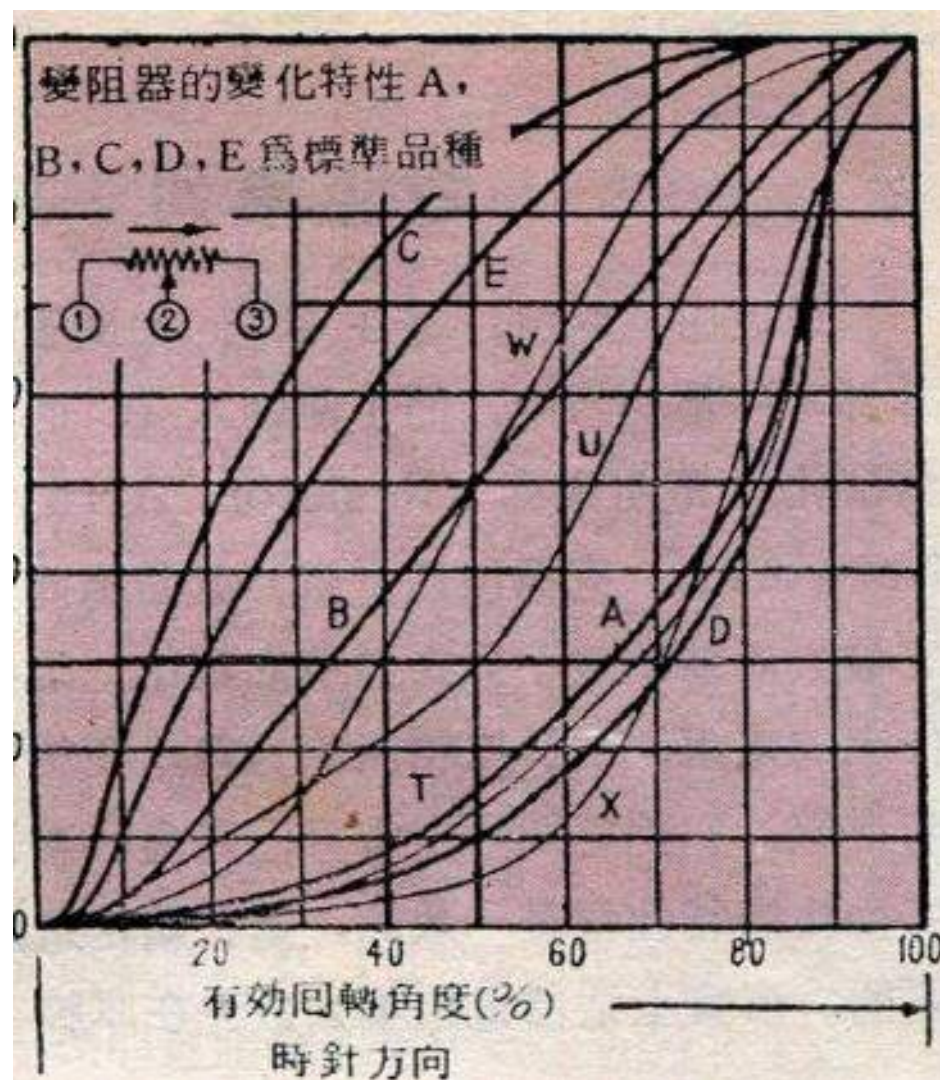 變阻器的變化特性A,
B,C,D,E爲標準品種
C
E
① ② ③
W
U
B
A
D
T
X
0
20 40 60 80 100
有効回轉角度(%)
時針方向